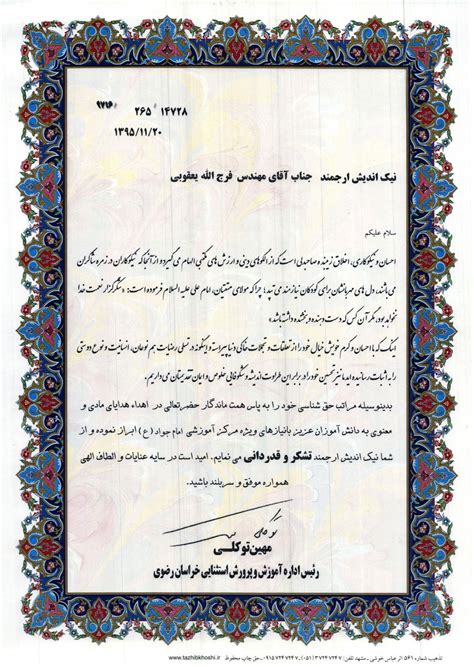 ۱۴۷۲۸ ۲۶۵
۱۳۹۵/۱۱/۲۰
نیک اندیش ارجمند جناب آقای مهندس فرج الله یعقوبی
سلام علیکم
احسان و نیکوکاری، اخلاق زیبنده صاحبدلی است که از الگوهای دینی و ارزش های مکتبی الهام می گیرد و از آنجا که نیکوکاران در زمره شاکران
می باشند، دل های مهربانشان برای کودکان نیازمند می تپد؛ چرا که مولای متقیان، امام علی علیه السلام فرموده است: «شکرگزار نعمت خدا
نخواهد بود مگر آن کس که دست دهنده و بخشنده داشته باشد».
اینک که با احسان و کرم خویش خیال خود را از تعلقات و تجملات خاکی دنیا پیراسته و اینگونه در تسلی رضایت هم نوعان، انسانیت و نوع دوستی
را به اثبات رسانیده اید ما نیز تحسین خود را در برابر این طراوت اندیشه و شکوفایی خلوص و ایمان تقدیمتان می داریم.
بدینوسیله مراتب حق شناسی خود را به پاس همت ماندگار حضرتعالی در اهداء هدایای مادی و
معنوی به دانش آموزان عزیز بانیازهای ویژه مرکز آموزشی امام جواد (ع) ابراز نموده و از
شما نیک اندیش ارجمند تشکر و قدردانی می نمایم. امید است در سایه عنایات و الطاف الهی
همواره موفق و سربلند باشید.
مهین توکلی
رئیس اداره آموزش و پرورش استثنایی خراسان رضوی
تذهیب شماره ۵۶۱ اثر عباس خوشی - مشهد تلفن: ۳۷۲۴۷۲۴۷ (۰۵۱) - ۰۹۱۵۷۲۴۷۲۴۷ - حق چاپ محفوظ www.tazhibkhoshi.ir